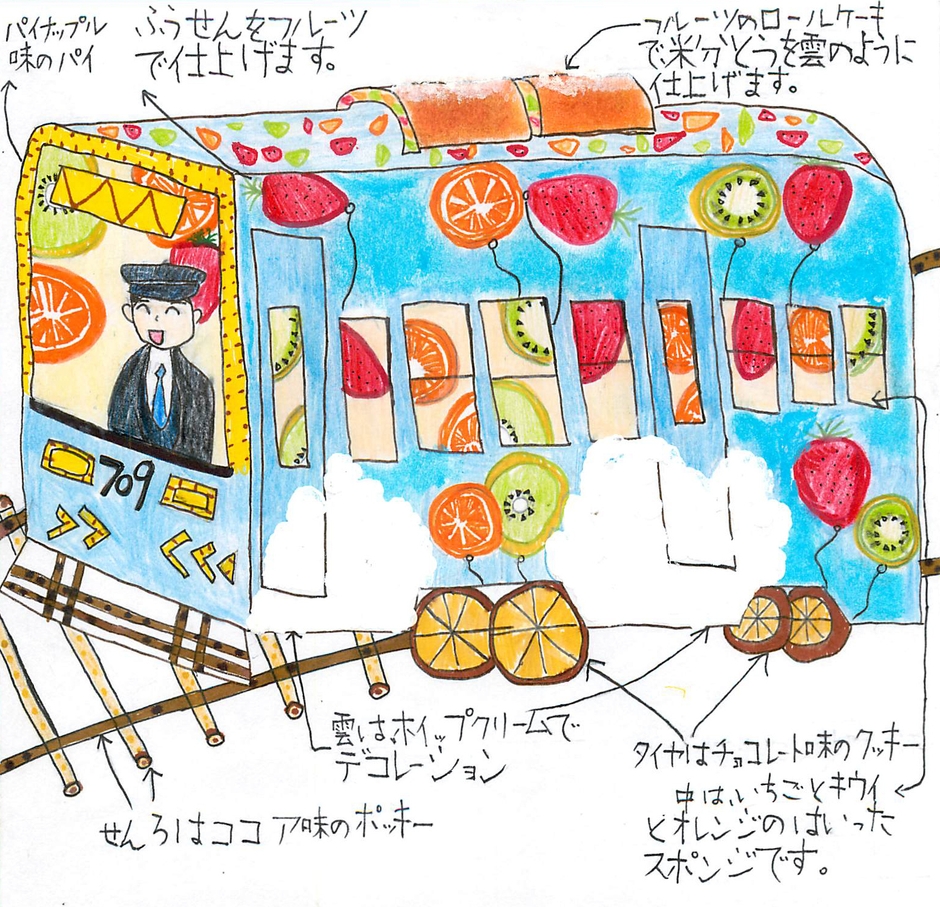 パイナップル
味のパイ
ふうせんをフルーツ
で仕上げます。
フルーツのロールケーキ
で、粉とうを雲のように
仕上げます。
709
雲は、ホイップクリームで
デコレーション
タイヤはチョコレート味のクッキー
せんろはココア味のポッキー
中は、いちごとキウイ
とオレンジのはいった
スポンジです。